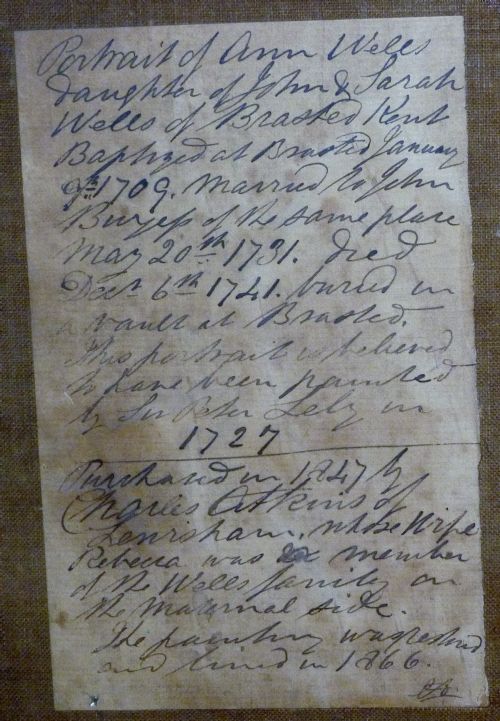 Portrait of Ann Wells
daughter of John & Sarah
Wells of Brasted Kent
Baptized at Brasted January
9th 1709. Married to John
Burgess of the same place
May 20th 1731. died
Decr 6th 1741. buried in
a vault at Brasted.
This portrait is believed
to have been painted
by Sir Peter Lely in
1727
Purchased in 1847 by
Charles Atkins of
Lewisham, whose Wife
Rebecca was a member
of the Wells family on
the maternal side.
The painting was restored
and lined in 1866.